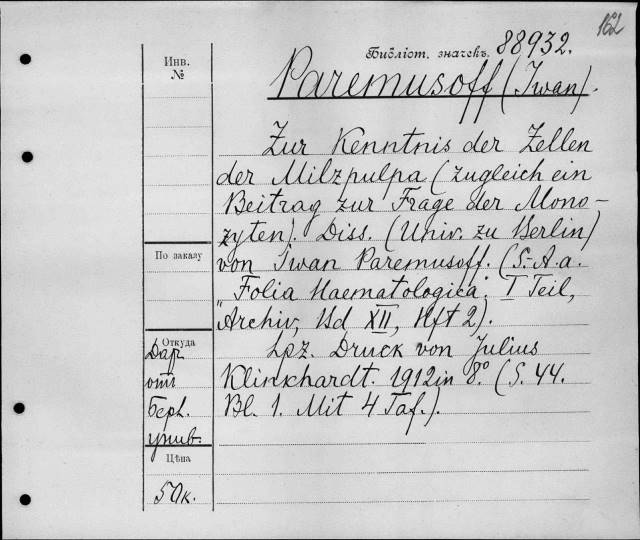 162
Библіот. значекъ. 88932.
Инв.
№
Paremusoff (Iwan).
Zur Kenntnis der Zellen
der Milzpulpa (zugleich ein
Beitrag zur Frage der Mono-
zyten). Diss. (Univ. zu Berlin)
von Iwan Paremusoff. (S.-A. a.
„Folia Haematologica". I Teil,
Archiv, Bd XII, Hft 2).
Lpz. Druck von Julius
Klinkhardt. 1912 in 8°. (S. 44.
Bl. 1. Mit 4 Taf.).
По заказу
Откуда
Дар
отъ
Берл.
унив.
Цѣна
50к.